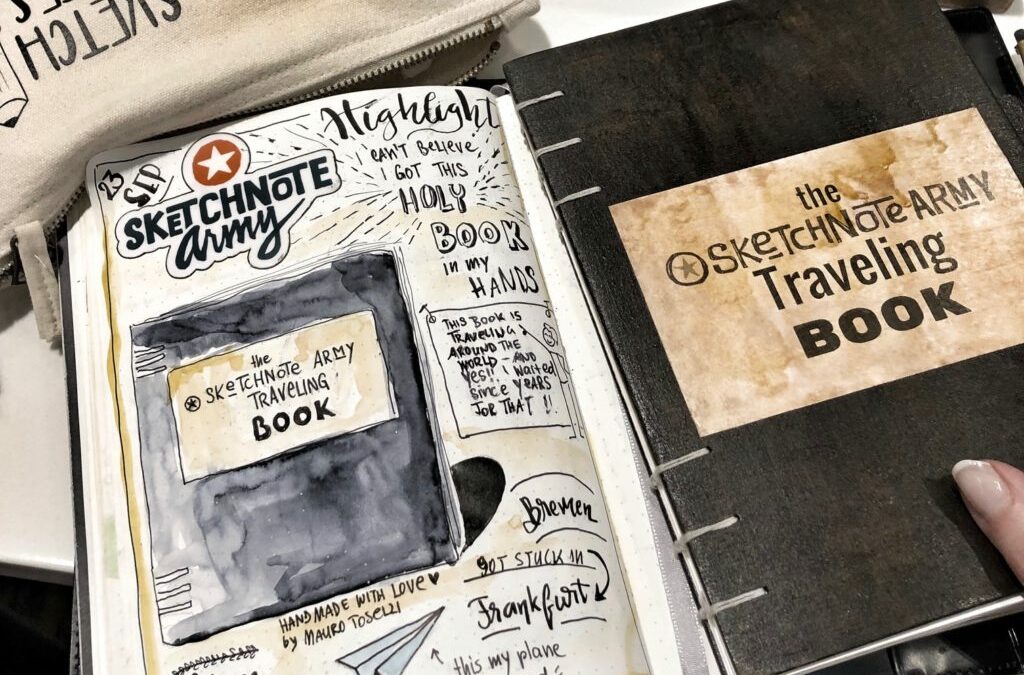 SKETCH
23
SEP
SKETCHNOTE
army
Highlight
CAN'T BELIEVE
I GOT THIS
HOLY
BOOK
in my
HANDS
THIS BOOK IS
TRAVELING
AROUND THE
WORLD - AND
YES!! I WAITED
since YEARS
FOR THAT !!
the
SKETCHNOTE ARMY
TRAVELING
BOOK
HANDMADE WITH LOVE ♥
by MAURO TOSELLI
Bremen
GOT STUCK IN
Frankfurt
this my plane
the
SKETCHNOTE ARMY
Traveling
BOOK